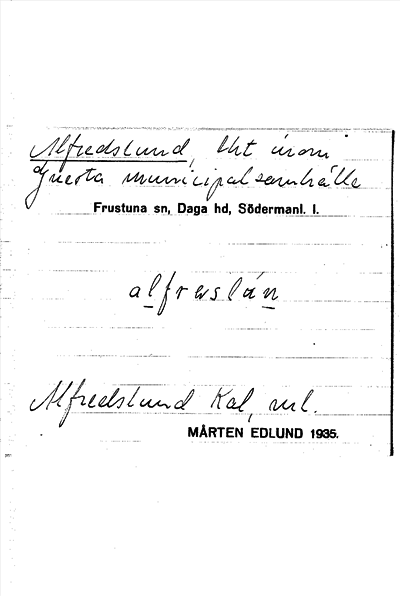 Alfredslund, lht inom
Gnesta municipalsamhälle
Frustuna sn, Daga hd, Södermanl. l.
alfrəslún
Alfredslund Kal, ml.
MÅRTEN EDLUND 1935.